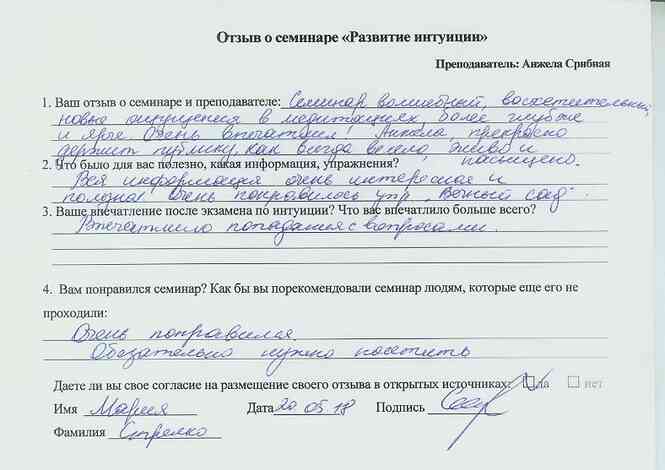 Отзыв о семинаре «Развитие интуиции»
Преподаватель: Анжела Срибная
1. Ваш отзыв о семинаре и преподавателе: Семинар волшебный, восхитительный,
новые ощущения в медитациях, более глубже
и ярче. Очень впечатлил! Анжела, прекрасно
держит публику, как всегда весело, живо и
насыщено.
2. Что было для вас полезно, какая информация, упражнения?
Вся информация очень интересная и
полезна! Очень понравилось упр. "Вечный сад".
3. Ваше впечатление после экзамена по интуиции? Что вас впечатлило больше всего?
Впечатлило попадания с вопросами.
4. Вам понравился семинар? Как бы вы порекомендовали семинар людям, которые еще его не
проходили:
Очень понравился.
Обязательно нужно посетить
Даете ли вы свое согласие на размещение своего отзыва в открытых источниках: да нет
Имя Мария Дата 20 05 18 Подпись
Фамилия Стрелко